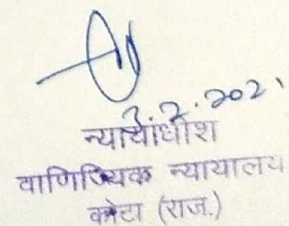 3.2.2021
न्यायाधीश
वाणिज्यिक न्यायालय
कोटा (राज.)